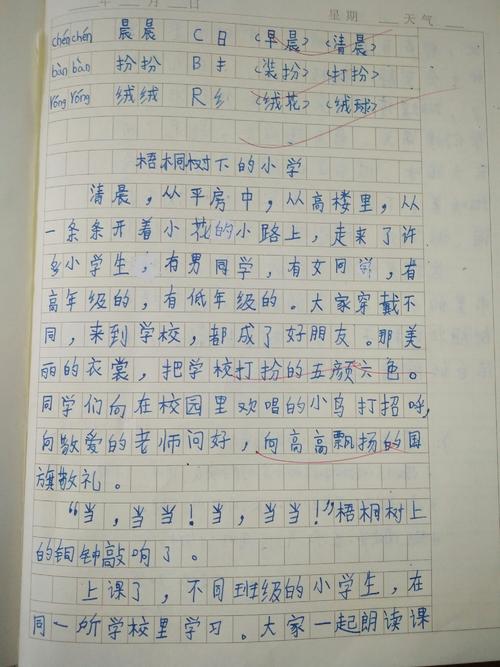 年 月 日 星期 天气
chén chén 晨晨 C 日 (早晨)(清晨)
bàn bàn 扮扮 B 扌 (装扮)(打扮)
róng róng 绒绒 R 纟 (绒花)(绒球)
梧桐树下的小学
清晨，从平房中，从高楼里，从
一条条开着小花的小路上，走来了许
多小学生，有男同学，有女同学，有
高年级的，有低年级的。大家穿戴不
同，来到学校，都成了好朋友。那美
丽的衣裳，把学校打扮的五颜六色。
同学们向在校园里欢唱的小鸟打招呼，
向敬爱的老师问好，向高高飘扬的国
旗敬礼。
“当，当当！当，当当！”梧桐树上
的铜钟敲响了。
上课了，不同班级的小学生，在
同一所学校里学习。大家一起朗读课